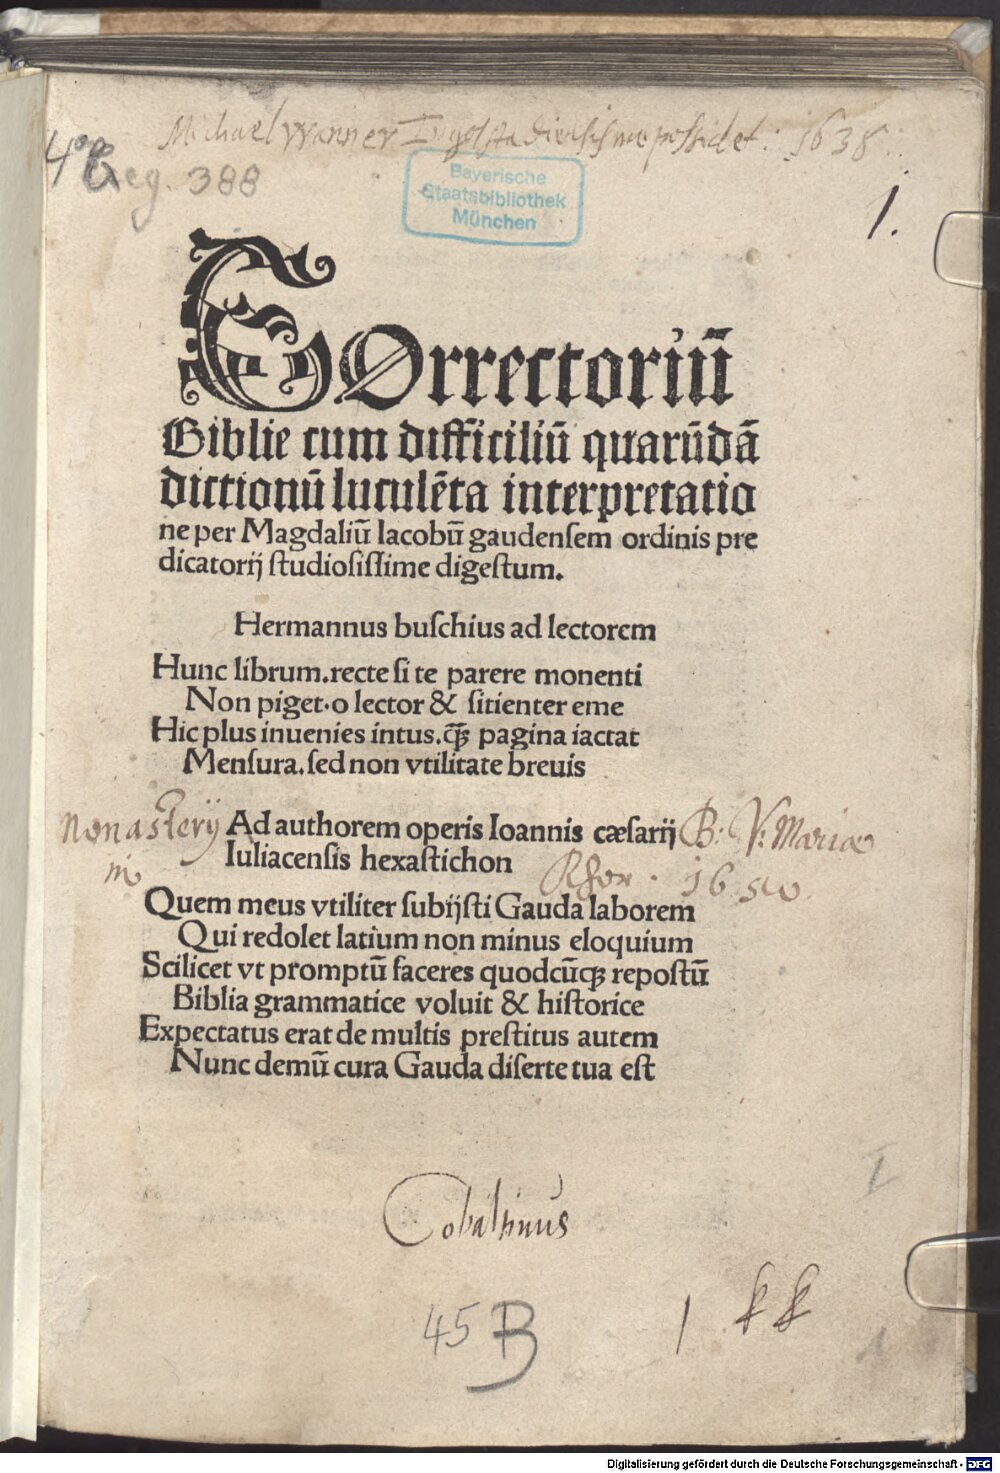 Michael Wanner Ingolstadiensis me possidet: 1638.
4º
Geg. 388
Bayerische
Staatsbibliothek
München
1.
COrrectoriū
Biblie cum difficiliū quarūdā
dictionū luculēta interpretatio
ne per Magdaliū Iacobū gaudensem ordinis pre
dicatorij studiosissime digestum.
Hermannus buschius ad lectorem
Hunc librum.recte si te parere monenti
Non piget.o lector & sitienter eme
Hic plus inuenies intus.q̄ꝫ pagina iactat
Mensura.sed non vtilitate breuis
Monasterij B: V: Mariæ
in Rhor. 1650
Ad authorem operis Ioannis cæsarij
Iuliacensis hexastichon
Quem meus vtiliter subijsti Gauda laborem
Qui redolet latium non minus eloquium
Scilicet vt promptū faceres quodcūqꝫ repostū
Biblia grammatice voluit & historice
Expectatus erat de multis prestitus autem
Nunc demū cura Gauda diserte tua est
I
45 B
1
Digitalisierung gefördert durch die Deutsche Forschungsgemeinschaft - DFG